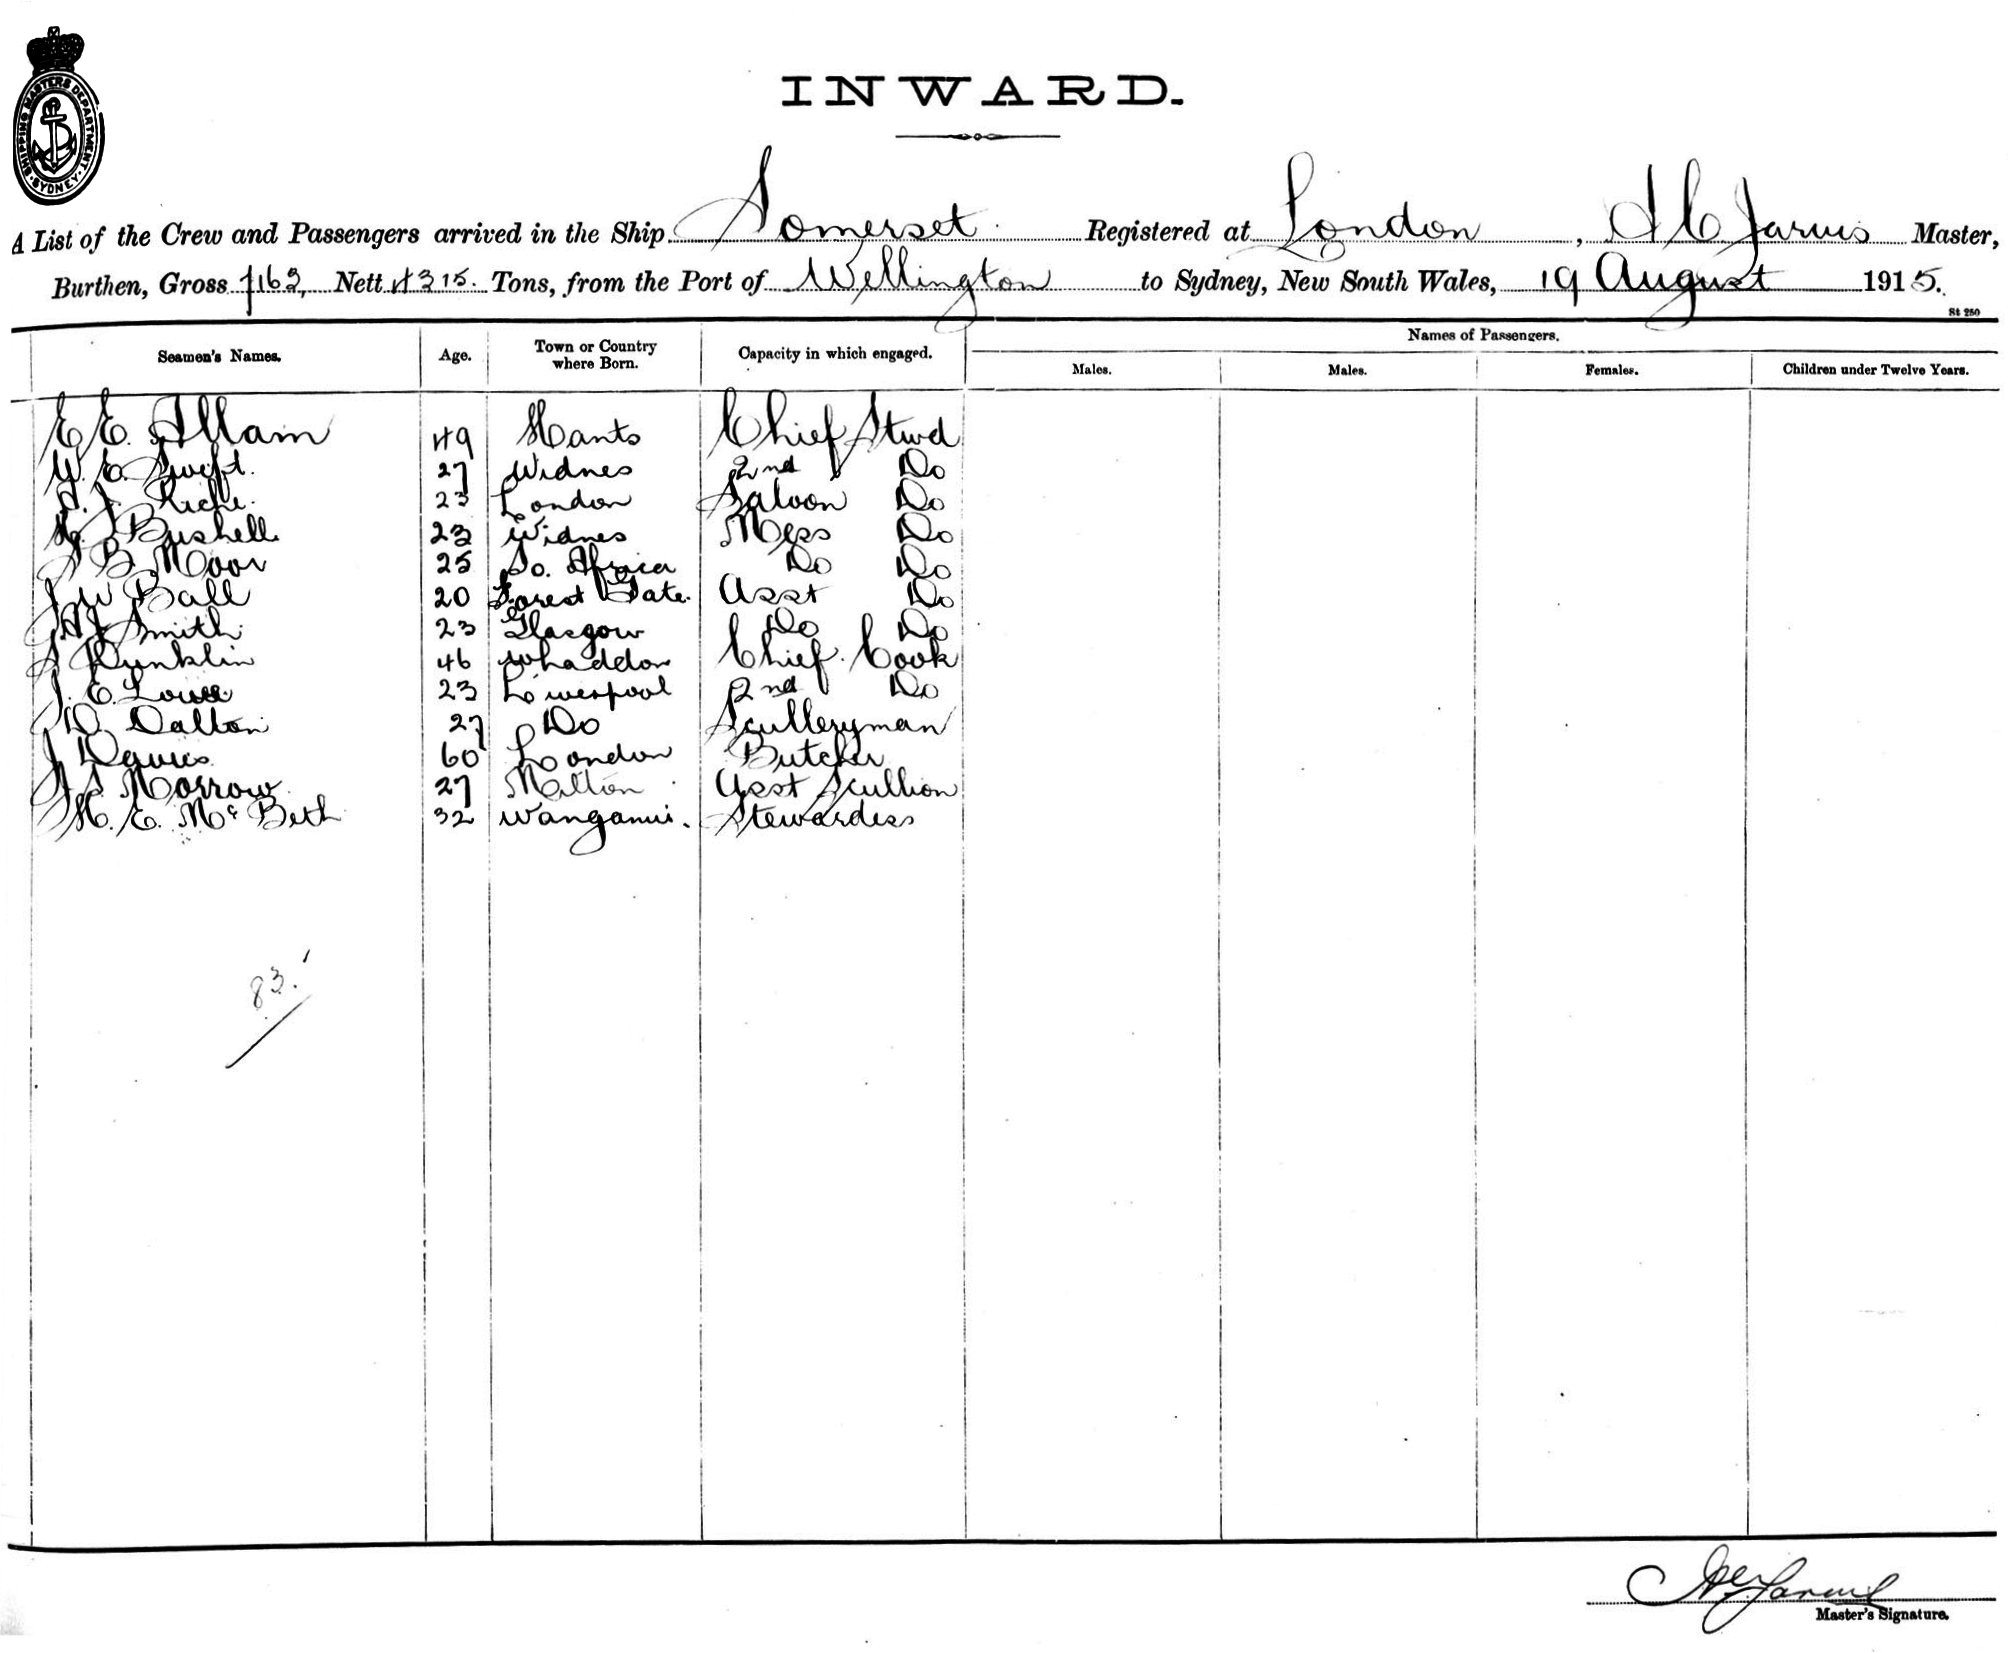 SHIPPING MASTERS DEPARTMENT
SYDNEY
INWARD.
A List of the Crew and Passengers arrived in the Ship Somerset Registered at London, A C Jarvis Master,
Burthen, Gross 7163, Nett 4315. Tons, from the Port of Wellington to Sydney, New South Wales, 19 August 1915.
St 250
Names of Passengers.
Seamen's Names. Age. Town or Country where Born. Capacity in which engaged. Males. Males. Females. Children under Twelve Years.
E E. Allam 49 Hants Chief Stwd
W. E. Swift. 27 Widnes 2nd Do
Riche. 23 London Saloon Do
Bushell 23 Widnes Mess Do
B. Moor 25 So. Africa Do Do
J W Ball 20 Forest Gate. Asst Do
Smith. 23 Glasgow Do Do
Dunklin 46 Whaddon Chief. Cook
J. E. Lowe 23 Liverpool 2nd Do
D. Dalton 27 Do Sculleryman
J Davies 60 London Butcher
Morrow 27 Milton Asst Scullion
M. E. McBeth 32 Wanganui. Stewardess
83.
Master's Signature.